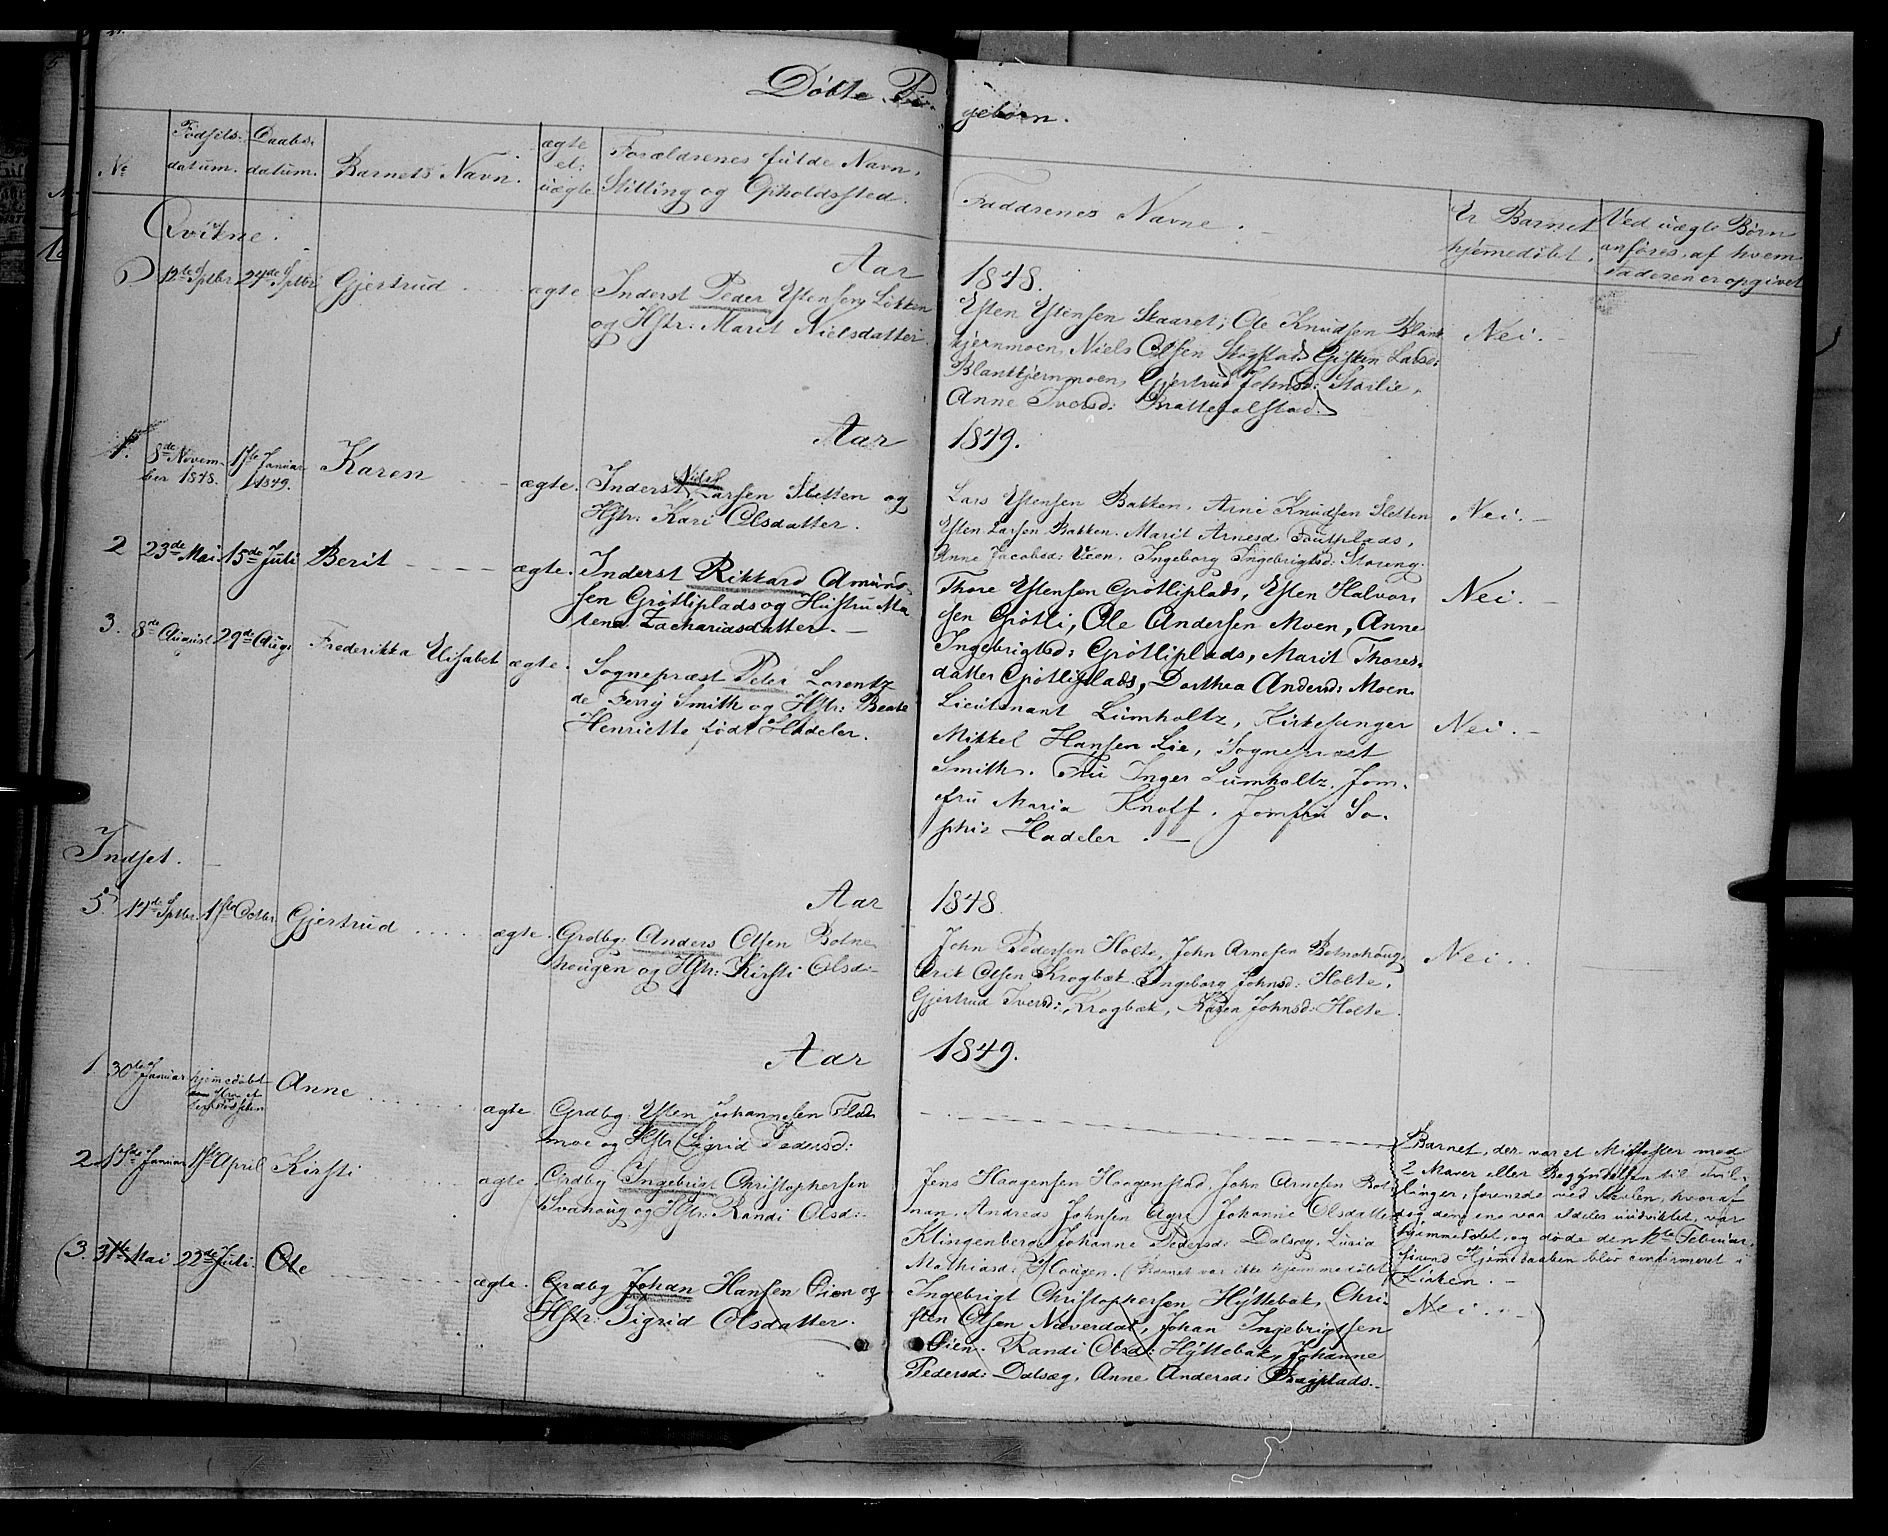 Døbte Pi-
gebørn.
No
Fødsels-
datum.
Daabs-
datum.
Barnets Navn.
ægte
el:
uægte
Forældrenes fulde Navn,
Stilling og Opholdssted.
Faddrenes Navne.
Er Barnet
hjemmedøbt.
Ved uægte Børn
anføres, af hvem
Faderen er opgivet
Qvikne.
Aar
1848.
12te Sptbr
24de Sptbr
Gjertrud
ægte
Inderst Peder Estensen Løkken
og Hstr: Marit Nielsdatter.
Esten Estensen Skaaret, Ole Knudsen Blank
kjernmoen, Niels Olsen Skogstad, Gjsken Larsd:
Blankkjernmoen, Gjertrud Johnsd:
Anne Iversd: Brattefalstad.
Nei.
Aar
1849.
1.
8de Novem-
ber 1848.
17de Januar
1849.
Karen
ægte.
Inderst Niels Larsen Sletten og
Hstr: Kari Olsdatter.
Lars Estensen Bakken, Arne Knudsen Sletten
Esten Larsen Bakken. Marit Arnesd:
Anne Jacobsd: Veen. Ingeborg Ingebrigtsd: Storeng.
Nei.
2
23de Mai
15de Juli
Berit
ægte.
Inderst Rikkard Amund-
sen Grøtliplads og Hustru Ma
lena Zachariasdatter.
Thore Estensen Grøtliplads, Esten Halvor-
sen Grøtli, Ole Andersen Moen, Anne
Ingebrigtsd: Grøtliplads, Marit Thores-
datter Grøtliplads, Dorthea Andersd: Moen
Nei.
3.
8de August
29de Aug:
Frederikka Elisabet
ægte.
Sognepræst Peter Lorentz
de Ferry Smith og Hstr: Beate
Henriette født Hadeler.
Lieutenant Lumholtz, Kirkesanger
Mikkel Hansen Lie, Sognepræst
Smith. Fru Inger Lumholtz, Jom-
fru Maria Knoff, Jomfru So-
phie Hadeler.
Nei.
Indset.
Aar
1848.
5.
14de Sptbr.
1ste Octbr
Gjertrud
ægte.
Grdbg: Anders Olsen Botne
hougen og Hstr: Kirsti Olsd:
John Pedersen Holte, John Arnesen Botnehoug,
Erik Olsen Krogbæk. Ingeborg Johnsd: Holte,
Gjertrud Iversd: Krogbæk, Karen Johnsd: Holte.
Nei.
Aar
1849.
1.
30te Januar
hjemmedøbt
Anne
ægte.
Grdbg. Esten Johannesen Flad
moe og Hstr Sigrid Pedersd:
Barnet, der var et Misfoster med
2 Maver eller Begyndelsen til Tvil-
linger, forenede ved Navlen, hvoraf
dog den ene var aldeles uudviklet, var
hjemmedøbt, og døde den 12te Februar,
førend Hjemmedaaben blev confirmeret i
Kirken.
2.
Januar
April
Kirsti
ægte
Grdbg Ingebrigt Christophersen
Svahoug og Hstr: Randi Olsd:
Jens Haagensen Haagenstad, John Arnesen Bot
man, Andreas Johnsen Agre. Johanne Olsdatter
Klingenberg, Johanne Pedersd: Dalsæg, Lucia
Mathiasd: Hougen. (Barnet var ikke hjemmedøbt
(3.
31te Mai
22de Juli.
Ole
ægte.
Grdbg Johan Hansen Øien og
Hstr: Sigrid Olsdatter.
Ingebrigt Christophersen Hyttebak, Chri-
sten Olsen Næverdal, Johan Ingebrigtsen
Øien. Randi Olsd: Hyttebak, Johanne
Pedersd: Dalsæg, Anne Andersd:
Nei.